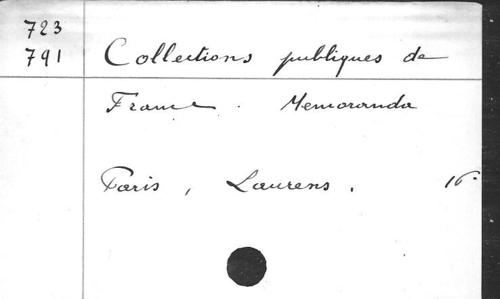 723
791 Collections publiques de
France. Memoranda
Paris, Laurens. 16°